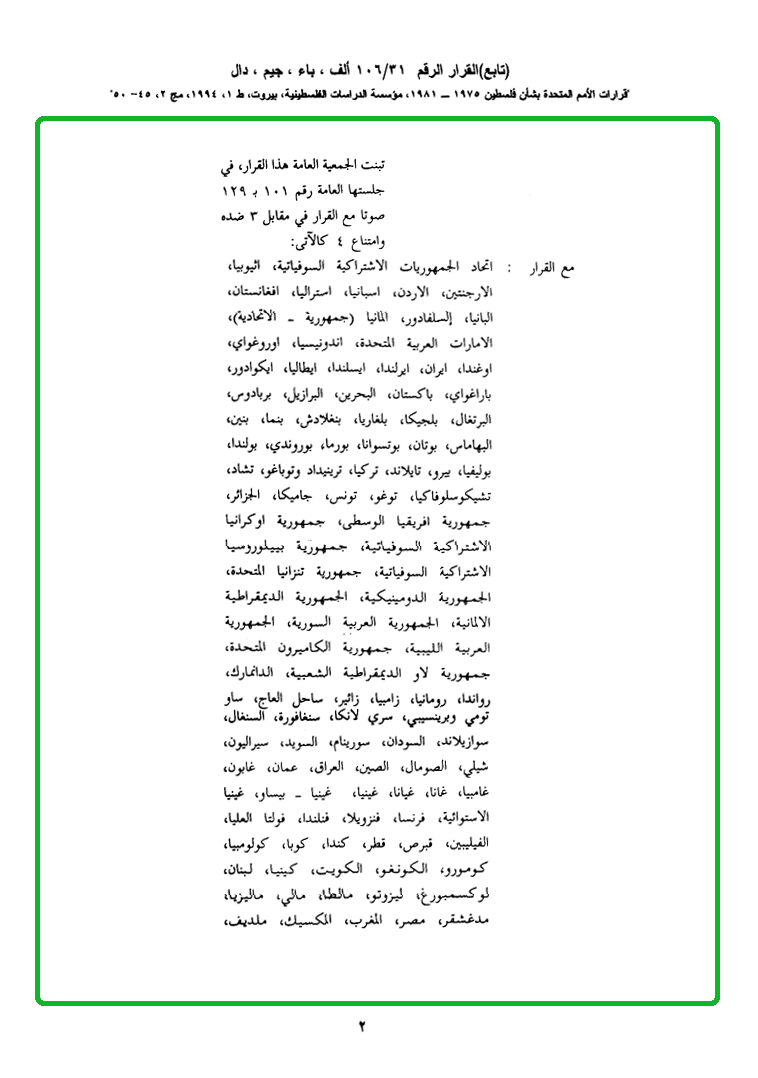 (تابع)القرار الرقم ١٠٦/٣١ ألف ، باء ، جيم ، دال
"قرارات الأمم المتحدة بشأن فلسطين ١٩٧٥ – ١٩٨١، مؤسسة الدراسات الفلسطينية، بيروت، ط ١، ١٩٩٤، مج ٢، ٤٥- ٥٠"
تبنت الجمعية العامة هذا القرار، في
جلستها العامة رقم ١٠١ بـ ١٢٩
صوتا مع القرار في مقابل ٣ ضده
وامتناع ٤ كالآتى:
مع القرار : اتحاد الجمهوريات الاشتراكية السوفياتية، اثيوبيا،
الارجنتين، الاردن، اسبانيا، استراليا، افغانستان،
البانيا، إلسلفادور، المانيا (جمهورية ـ الاتحادية)،
الامارات العربية المتحدة، اندونيسيا، اوروغواي،
اوغندا، ايران، ايرلندا، ايسلندا، ايطاليا، ايكوادور،
باراغواي، باكستان، البحرين، البرازيل، بربادوس،
البرتغال، بلجيكا، بلغاريا، بنغلادش، بنما، بنين،
البهاماس، بوتان، بوتسوانا، بورما، بوروندي، بولندا،
بوليفيا، بيرو، تايلاند، تركيا، ترينيداد وتوباغو، تشاد،
تشيكوسلوفاكيا، توغو، تونس، جاميكا، الجزائر،
جمهورية افريقيا الوسطى، جمهورية اوكرانيا
الاشتراكية السوفياتية، جمهورية بييلوروسيا
الاشتراكية السوفياتية، جمهورية تنزانيا المتحدة،
الجمهورية الدومينيكية، الجمهورية الديمقراطية
الالمانية، الجمهورية العربية السورية، الجمهورية
العربية الليبية، جمهورية الكاميرون المتحدة،
جمهورية لاو الديمقراطية الشعبية، الدانمارك،
رواندا، رومانيا، زامبيا، زائير، ساحل العاج، ساو
تومي وبرينسيبي، سري لانكا، سنغافورة، السنغال،
سوازيلاند، السودان، سورينام، السويد، سيراليون،
شيلي، الصومال، الصين، العراق، عمان، غابون،
غامبيا، غانا، غيانا، غينيا، غينيا ـ بيساو، غينيا
الاستوائية، فرنسا، فنزويلا، فنلندا، فولتا العليا،
الفيليبين، قبرص، قطر، كندا، كوبا، كولومبيا،
كومورو، الكونغو، الكويت، كينيا، لبنان،
لوكسمبورغ، ليزوتو، مالطا، مالي، ماليزيا،
مدغشقر، مصر، المغرب، المكسيك، ملديف،
٢